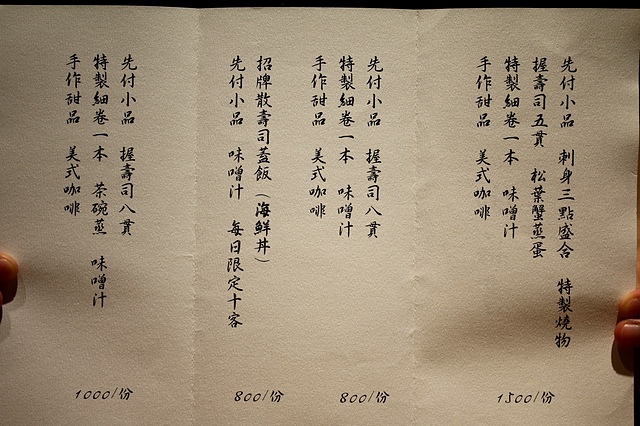 先付小品 刺身三點盛合 特製燒物
握壽司五貫 松葉蟹蒸蛋
特製細卷一本 味噌汁
手作甜品 美式咖啡
1500/份
先付小品 握壽司八貫
特製細卷一本 味噌汁
手作甜品 美式咖啡
800/份
招牌散壽司蓋飯（海鮮丼）
先付小品 味噌汁 每日限定十客
800/份
先付小品 握壽司八貫
特製細卷一本 茶碗蒸 味噌汁
手作甜品 美式咖啡
1000/份